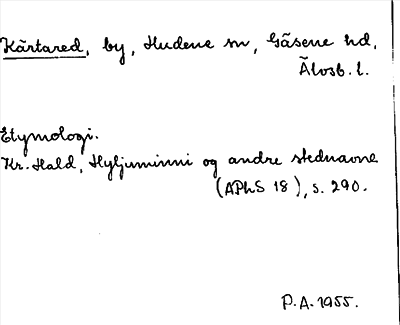 Kärtared, by, Hudene sn, Gäsene hd,
Älvsb. l.
Etymologi.
Kr. Hald, Hyljuminni og andre stednavne
(APhS 18), s. 290.
P.A. 1955.